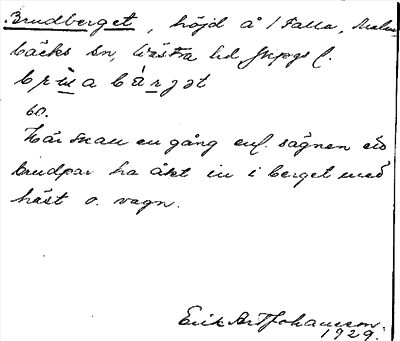 Brudberget, höjd å 1 Falla, Malm
bäcks sn, Västra hd Jkpgs l.
60.
Här skall en gång enl. sägnen ett
brudpar ha åkt in i berget med
häst o. vagn.
Erik Art Johansson.
1929.